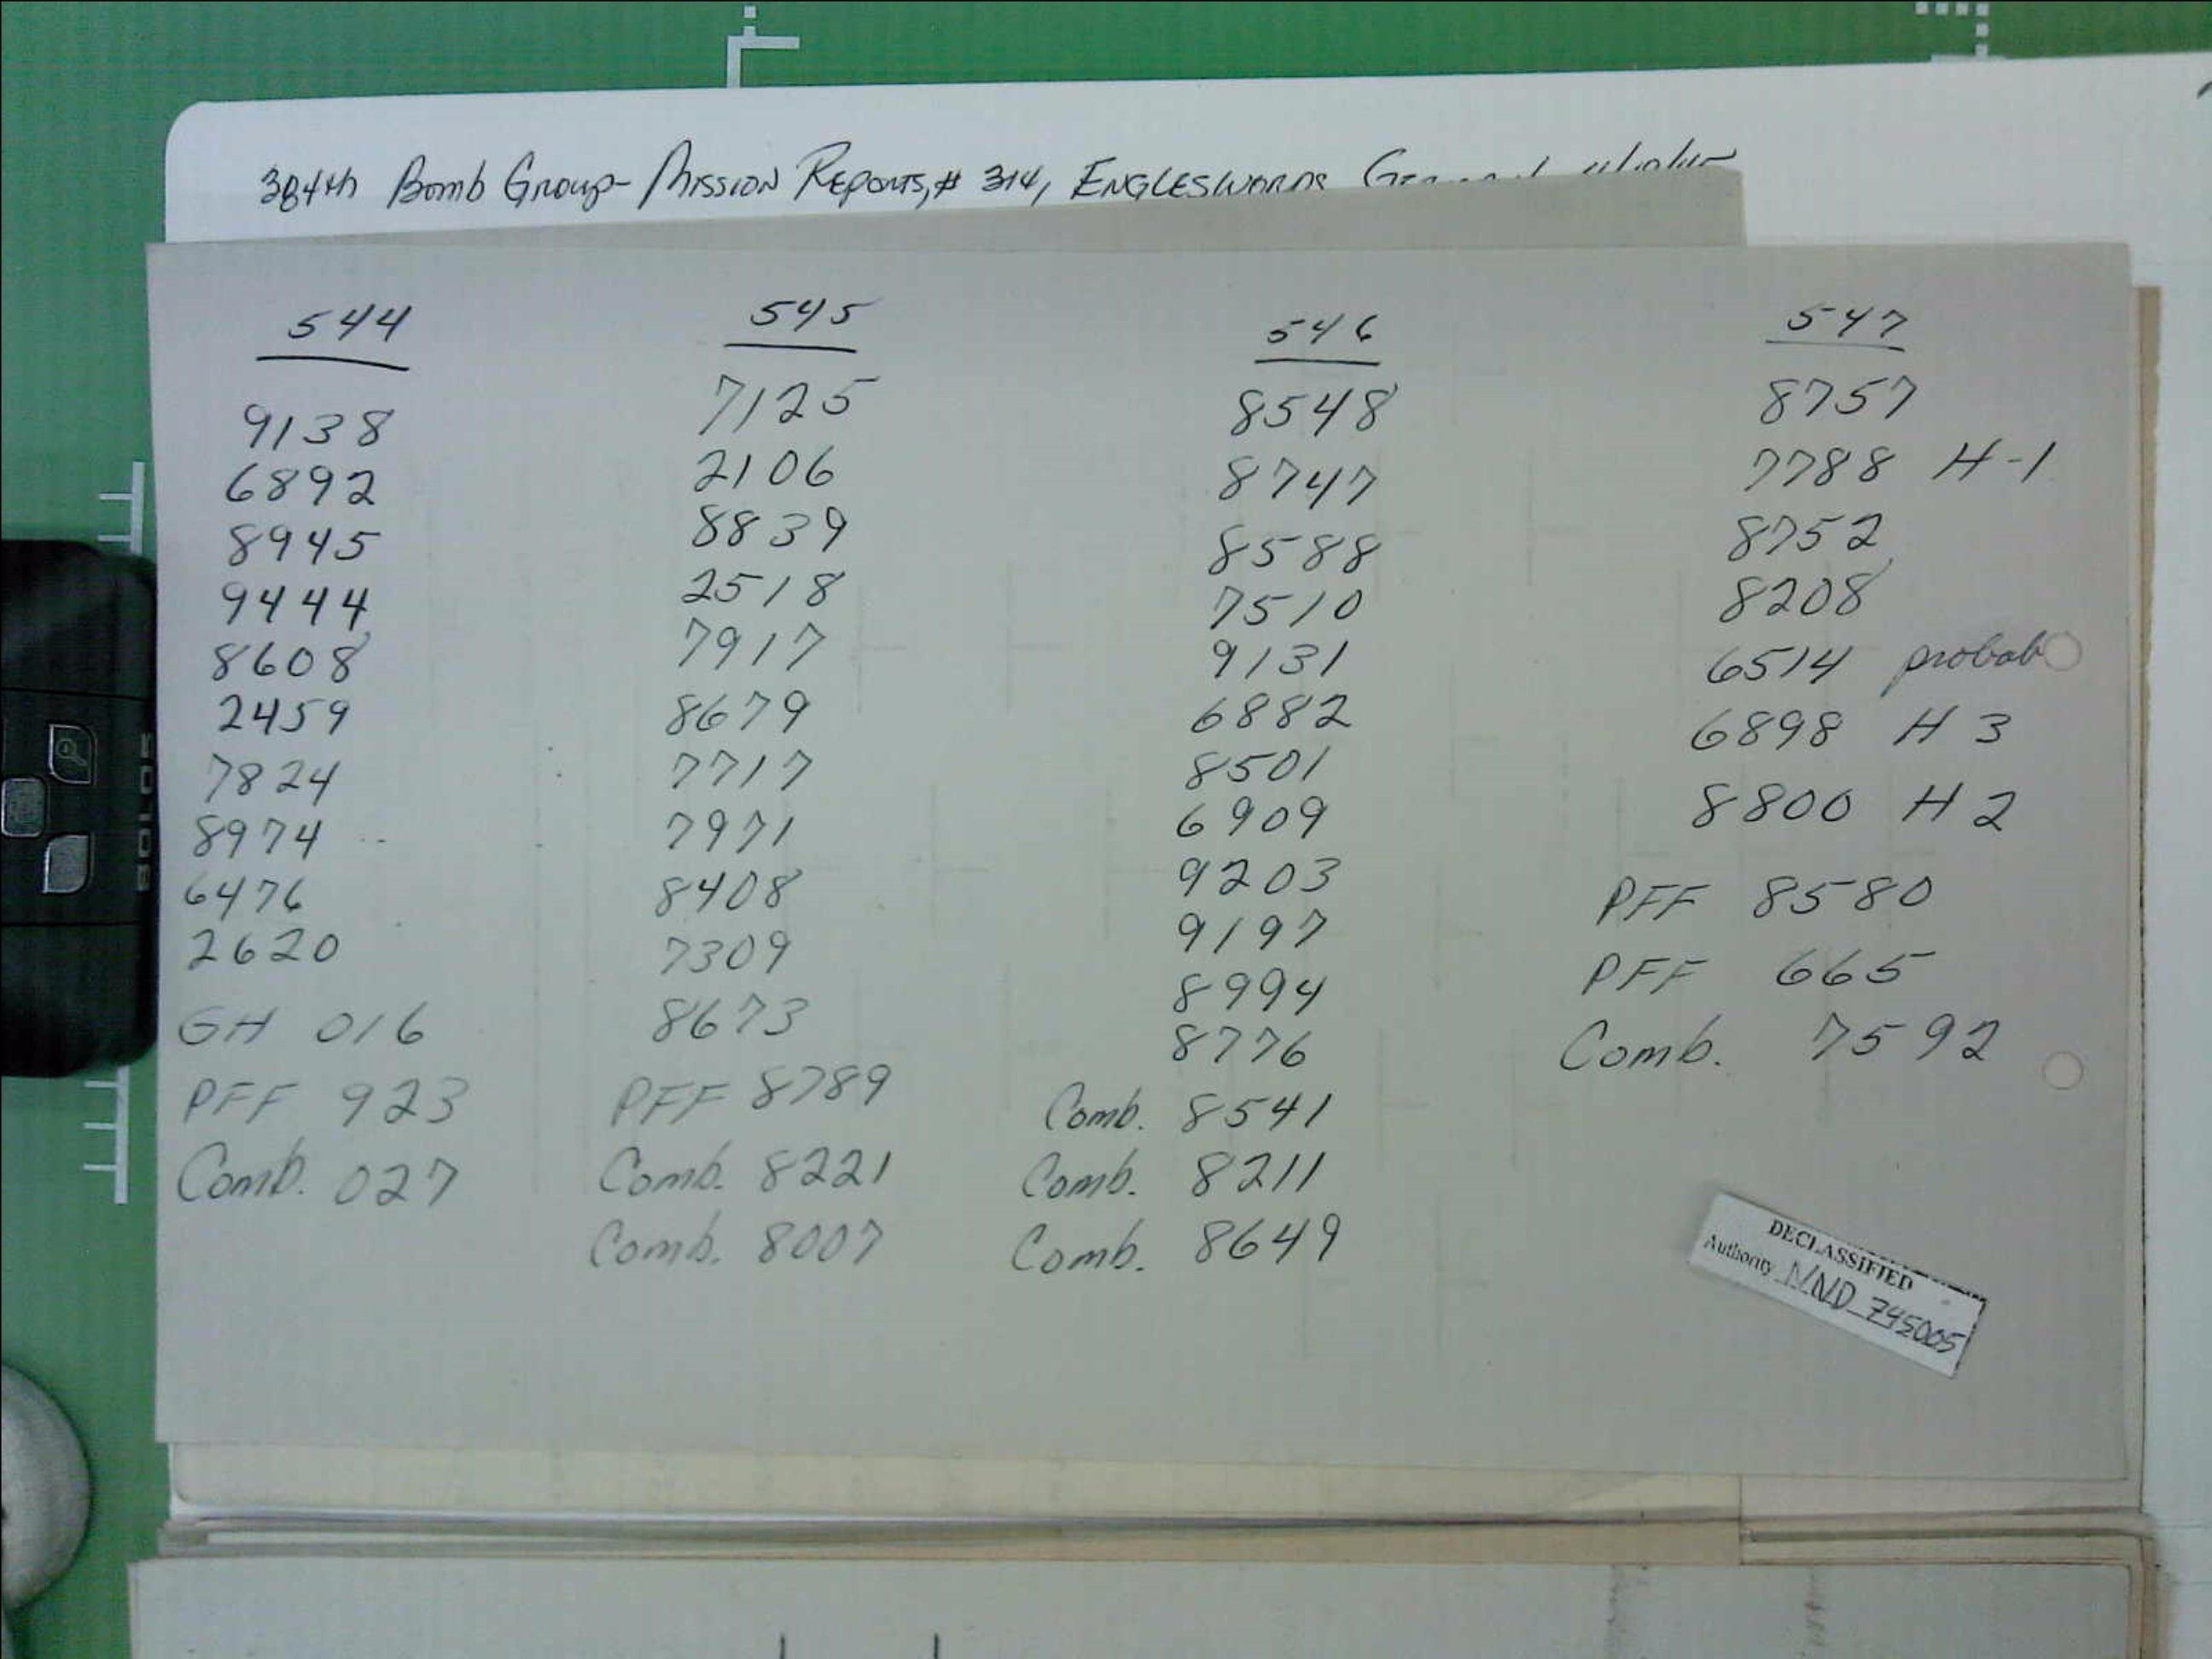 384th Bomb Group- Mission Reports, # 314, ENGLESWORDS
544
9138
6892
8945
9444
8608
2459
7824
8974
6476
2620
GH 016
PFF 923
Comb. 027
545
7125
2106
8839
2518
7917
8679
7717
7971
8408
7309
8673
PFF 8789
Comb. 8221
Comb. 8007
546
8548
8747
8588
7510
9131
6882
8501
6909
9203
9197
8994
8776
Comb. 8541
Comb. 8211
Comb. 8649
547
8757
7788 H-1
8752
8208
6514 probab
6898 H 3
8800 H 2
PFF 8580
PFF 665
Comb. 7592
DECLASSIFIED
Authority NND 745005
SOLO8